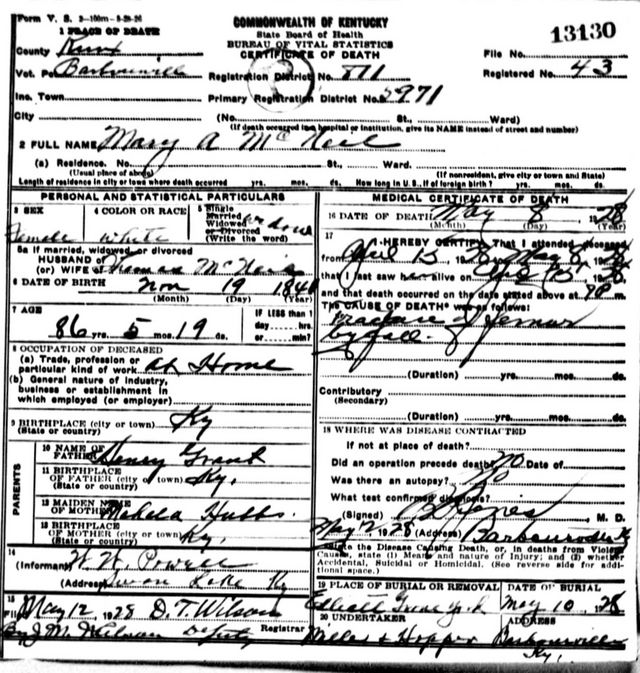 Form V. S. 2-100m-8-28-26
COMMONWEALTH OF KENTUCKY
State Board of Health
BUREAU OF VITAL STATISTICS
CERTIFICATE OF DEATH
13130
1 PLACE OF DEATH
County Knox
File No.
Vot. Barbourville
Registration District No. 811
Registered No. 43
Inc. Town
Primary Registration District No. 5971
City (No. St., Ward)
(If death occurred in a hospital or institution, give its NAME instead of street and number)
2 FULL NAME Mary A McNeil
(a) Residence. No. St., Ward.
(Usual place of abode) (If nonresident, give city or town and State)
Length of residence in city or town where death occurred yrs. mos. ds. How long in U. S., if of foreign birth? yrs. mos. ds.
PERSONAL AND STATISTICAL PARTICULARS
3 SEX 4 COLOR OR RACE 5 Single Married Widowed or Divorced (Write the word)
Female White
5a If married, widowed or divorced
HUSBAND of
(or) WIFE of Thomas McNeil
6 DATE OF BIRTH Nov 19
(Month) (Day) (Year)
7 AGE IF LESS than 1
86 yrs. 5 mos. 19 ds. day hrs. or min.?
8 OCCUPATION OF DECEASED
(a) Trade, profession or
particular kind of work at Home
(b) General nature of industry,
business or establishment in
which employed (or employer)
9 BIRTHPLACE (city or town) Ky
(State or country)
PARENTS
10 NAME OF FATHER Henry Grant
11 BIRTHPLACE
OF FATHER (city or town) Ky.
(State or country)
12 MAIDEN NAME
OF MOTHER Hubbs.
13 BIRTHPLACE
OF MOTHER (city or town) Ky.
(State or country)
14
(Informant) Powell
(Address) Swan Lake Ky
15
Filed May 12, 1928 D. T. Wilson
Registrar
By J. M. Wilson Deputy
MEDICAL CERTIFICATE OF DEATH
16 DATE OF DEATH May 8, 1928
(Month) (Day) (Year)
17
I HEREBY CERTIFY, That I attended deceased
from April 15, 19 to May
that I last saw her alive on
and that death occurred on the date stated above at m.
The CAUSE OF DEATH* was as follows:
Fracture of Femur
by fall.
(Duration) yrs. mos. ds.
Contributory
(Secondary)
(Duration) yrs. mos. ds.
18 WHERE WAS DISEASE CONTRACTED
If not at place of death?
Did an operation precede death? No Date of
Was there an autopsy? No
What test confirmed diagnosis?
(Signed) Jones M. D.
May 12 1928 (Address) Barbourville Ky
*State the Disease Causing Death, or, in deaths from Violent
Causes, state (1) Means and nature of Injury; and (2) whether
Accidental, Suicidal or Homicidal. (See reverse side for addi-
tional space.)
19 PLACE OF BURIAL OR REMOVAL DATE OF BURIAL
Elliott May 10 1928
20 UNDERTAKER ADDRESS
& Hopper Barbourville
Ky.